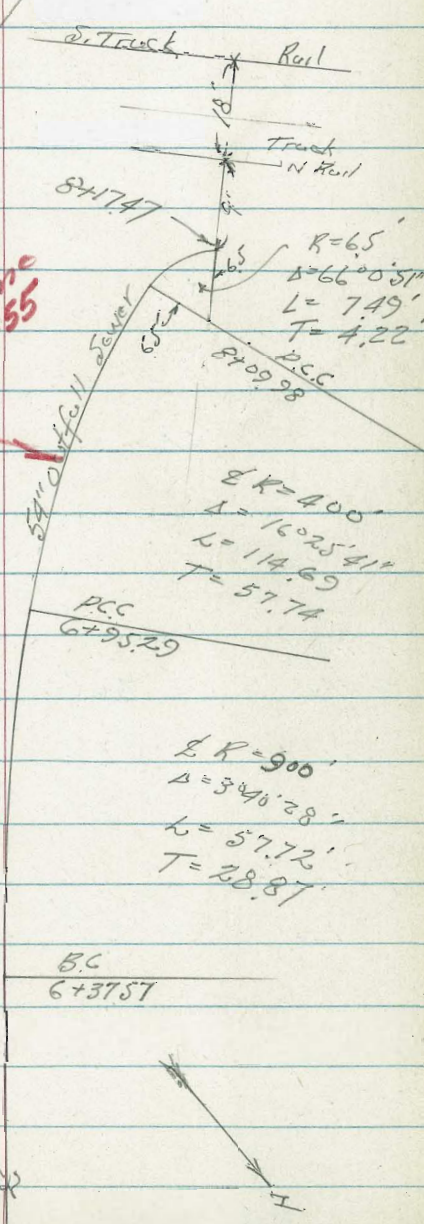 S. Track Rail
18'
Track
N Rail
9'
8+17.47
6.5
R=6.5'
Δ=66°0'51"
L= 7.49'
T= 4.22'
55
6.5'
P.C.C
8+09.98
54" Outfall Sewer
℄ R=400'
Δ= 16°25'41"
L= 114.69
T= 57.74
P.C.C
6+95.29
℄ R=900'
Δ=3°40'28"
L= 57.72'
T= 28.87'
B.C
6+37.57